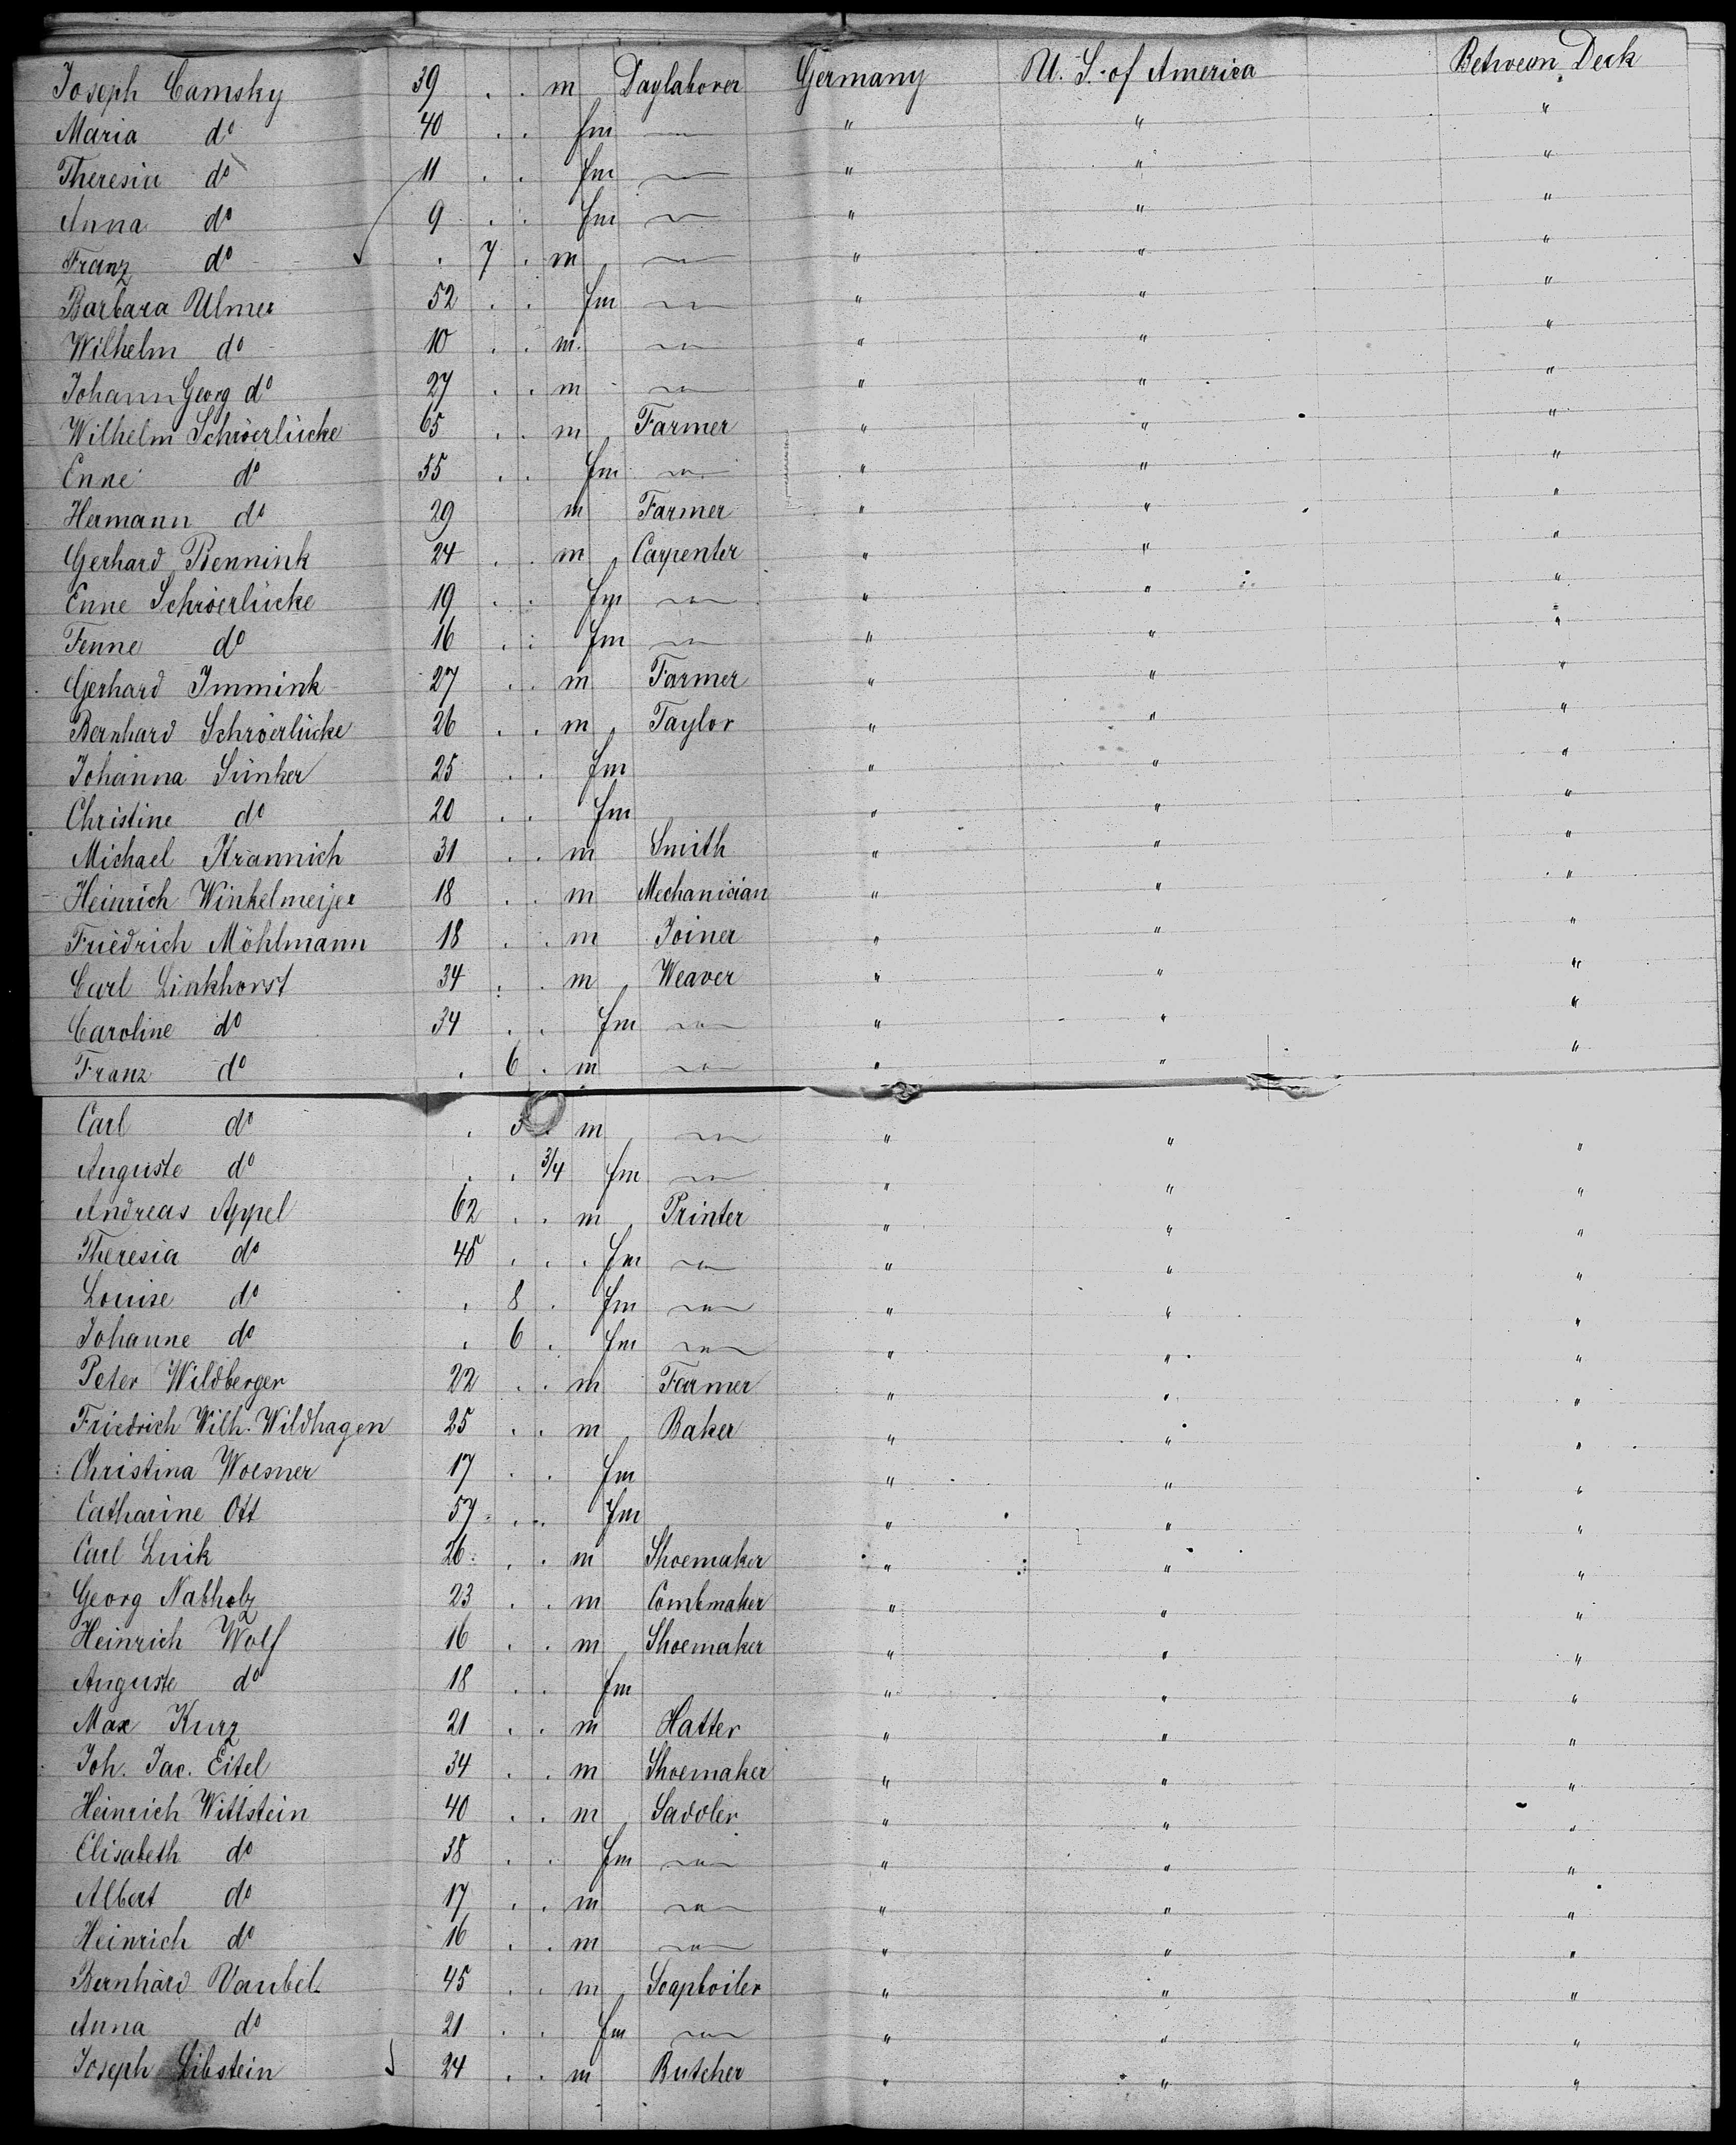 Joseph Camsky 39 . . m Daylaborer Germany U. S. of America Between Deck
Maria do 40 . . fm — " " "
Theresia do 11 . . fm — " " "
Anna do 9 . . fm — " " "
Franz do . 7 . m — " " "
Barbara Ulmer 52 . . fm — " " "
Wilhelm do 10 . . m — " " "
Johann Georg do 27 . . m — " " "
Wilhelm Schröerlücke 65 . . m Farmer " " "
Enne do 55 . . fm — " " "
Hermann do 29 m Farmer " " "
Gerhard Bennink 24 . . m Carpenter " " "
Enne Schröerlücke 19 . . fm — " " "
Fenne do 16 . . fm — " " "
Gerhard Immink 27 . . m Farmer " " "
Bernhard Schröerlücke 26 . . m Taylor " " "
Johanna Sünker 25 . . fm " " "
Christine do 20 . . fm " " "
Michael Krannich 31 . . m Smith " " "
Heinrich Winkelmeijer 18 . . m Mechanician " " "
Friedrich Möhlmann 18 . . m Joiner " " "
Carl Linkhorst 34 . . m Weaver " " "
Caroline do 34 . . fm — " " "
Franz do . 6 . m — " " "
Carl do . 3 . m — " " "
Auguste do . . 3/4 fm — " " "
Andreas Appel 62 . . m Printer " " "
Theresia do 45 . . . fm — " " "
Louise do . 8 . fm — " " "
Johanne do . 6 . fm — " " "
Peter Wildberger 22 . . m Farmer " " "
Friedrich Wilh. Wildhagen 25 . . m Baker " " "
Christina Woesner 17 . . fm " " "
Catharine Ott 57 . . fm " " "
Carl Luik 26 . . m Shoemaker " " "
Georg Nabholz 23 . . m Combmaker " " "
Heinrich Wolf 16 . . m Shoemaker " " "
Auguste do 18 . . fm " " "
Max Kurz 21 . . m Hatter " " "
Joh. Jac. Eitel 34 . . m Shoemaker " " "
Heinrich Wittstein 40 . . m Saddler " " "
Elisabeth do 38 . . fm — " " "
Albert do 17 . . m — " " "
Heinrich do 16 . . m — " " "
Bernhard Vaubel 45 . . m Soapboiler " " "
Anna do 21 . . fm — " " "
Joseph Libstein 24 . . m Butcher " " "